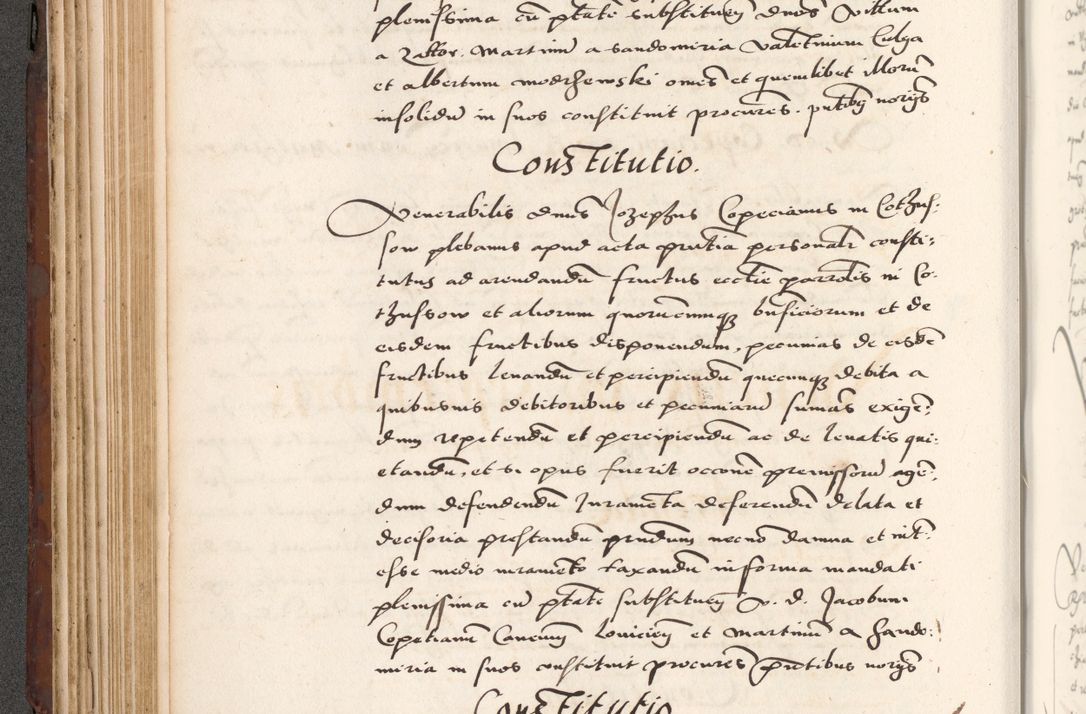 plenissima cu ptate substituen dnos Vittum
a Martinu a sandomiria Valetinum Culga
et albertum modrzewski omes et quemlibet illoru
insolidu in suos constituit procures. putibq norijs
Constitutio.
Venerabilis dnus Jozephus Copecianus in Cothus:
sow plebanus apud acta prntia personalr consti:
tutus ad arendandu fructus ecctie parrotis in Co:
thussow et aliorum quorucumqz bnficiorum et de
eisdem fructibus disponendum, pecunias de eisde
fructibus leuandu et percipiendu quecunqz debita a
quibusuis debitoribus et pecuniaru sumas exigen:
dum repetendu et percipiendu ac de leuatis qui:
etandu, et si opus fuerit occone premissoru agen:
dum defendendu Juramenta deferendu delata et
decisoria prestandu prndum necno damna et int:
esse medio iuramento taxandu in forma mandati
plenissima cu ptate substituen v. d. Jacobum
Copetianu Canonicu louicien et Martinum a sando:
miria in suos constituit procures prntibus norijs
Constitutio